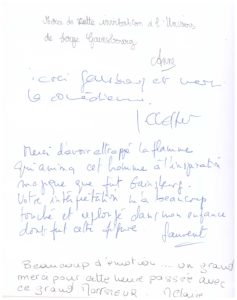 Merci de cette invitation à l'Univers
de Serge Gainsbourg
Anne
ici Gainsbourg et merci
la comédienne.
Merci d'avoir attrappé la flamme
qui anima cet homme à l'inspiration
magique que fut Gainsberg.
Votre interprétation m'a beaucoup
touché et replongé dans mon enfance
dont fut cette figure
Laurent
Beaucoup d'émotion... un grand
merci pour cette heure passée avec
ce grand Monsieur.